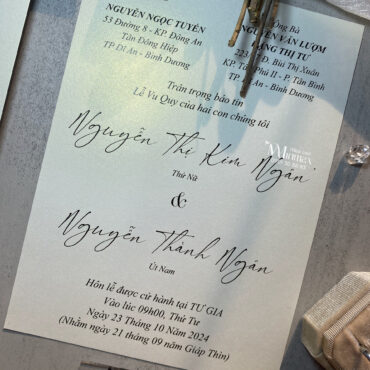 Ông Bà
NGUYỄN NGỌC TUYÊN
53 Đường 8 - KP. Đông An
Tân Đông Hiệp
TP Dĩ An - Bình Dương
NGUYỄN VĂN LƯỢM
ẶNG THỊ TƯ
Đ. Bùi Thị Xuân
KP. Tân Phú II - P. Tân Bình
TP Dĩ An - Bình Dương
Trân trọng báo tin
Lễ Vu Quy của hai con chúng tôi
Nguyễn Thị Kim Ngân
Thứ Nữ
&
Nguyễn Thành Ngân
Út Nam
Hôn lễ được cử hành tại TƯ GIA
Vào lúc 09h00, Thứ Tư
Ngày 23 Tháng 10 Năm 2024
(Nhằm ngày 21 tháng 09 năm Giáp Thìn)